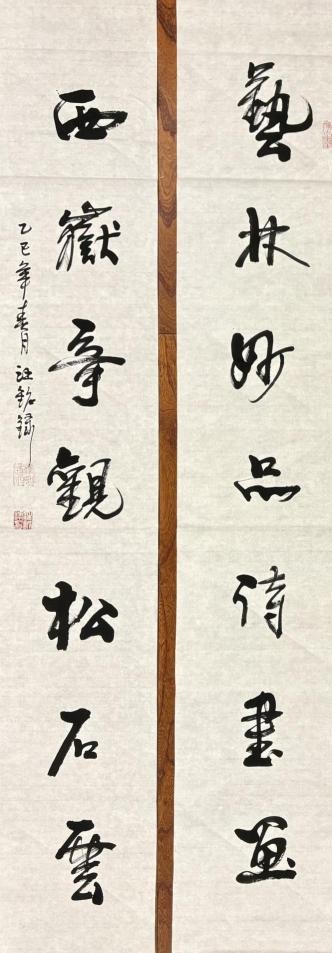 藝林妙品詩書畫
西嶽奇觀松石雲
乙巳年春月汪銘